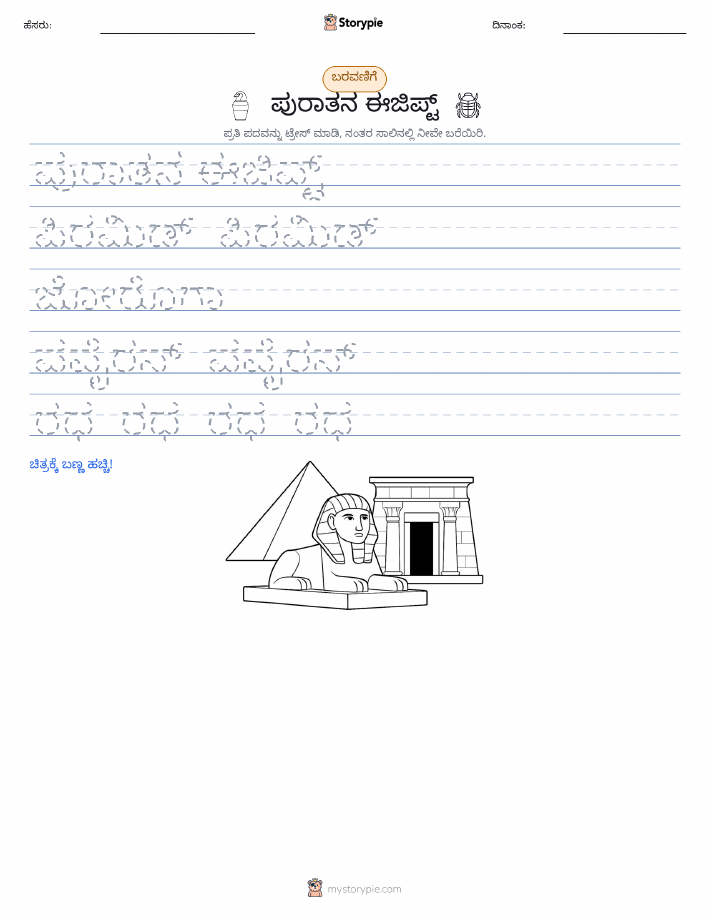 ಹೆಸರು:
Storypie
ದಿನಾಂಕ:
ಬರವಣಿಗೆ
ಪುರಾತನ ಈಜಿಪ್ಟ್
ಪ್ರತಿ ಪದವನ್ನು ಟ್ರೇಸ್ ಮಾಡಿ, ನಂತರ ಸಾಲಿನಲ್ಲಿ ನೀವೇ ಬರೆಯಿರಿ.
ಪುರಾತನ ಈಜಿಪ್ಟ್
ಪಿರಮಿಡ್ ಪಿರಮಿಡ್
ರಥ ರಥ ರಥ ರಥ
ಚಿತ್ರಕ್ಕೆ ಬಣ್ಣ ಹಚ್ಚಿ!
mystorypie.com